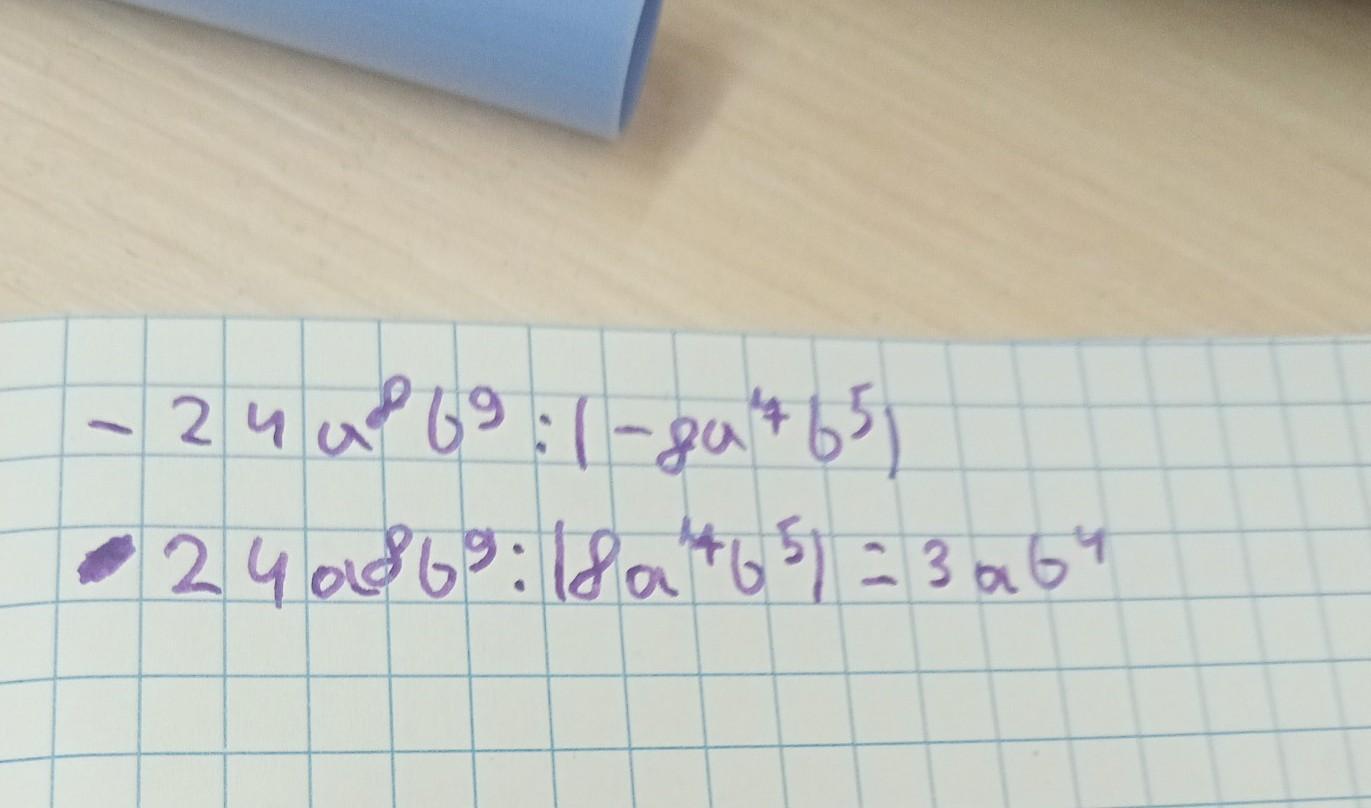 -24a⁸b⁹:(-8a⁷b⁵)
24a⁸b⁹:(8a⁷b⁵)=3ab⁴